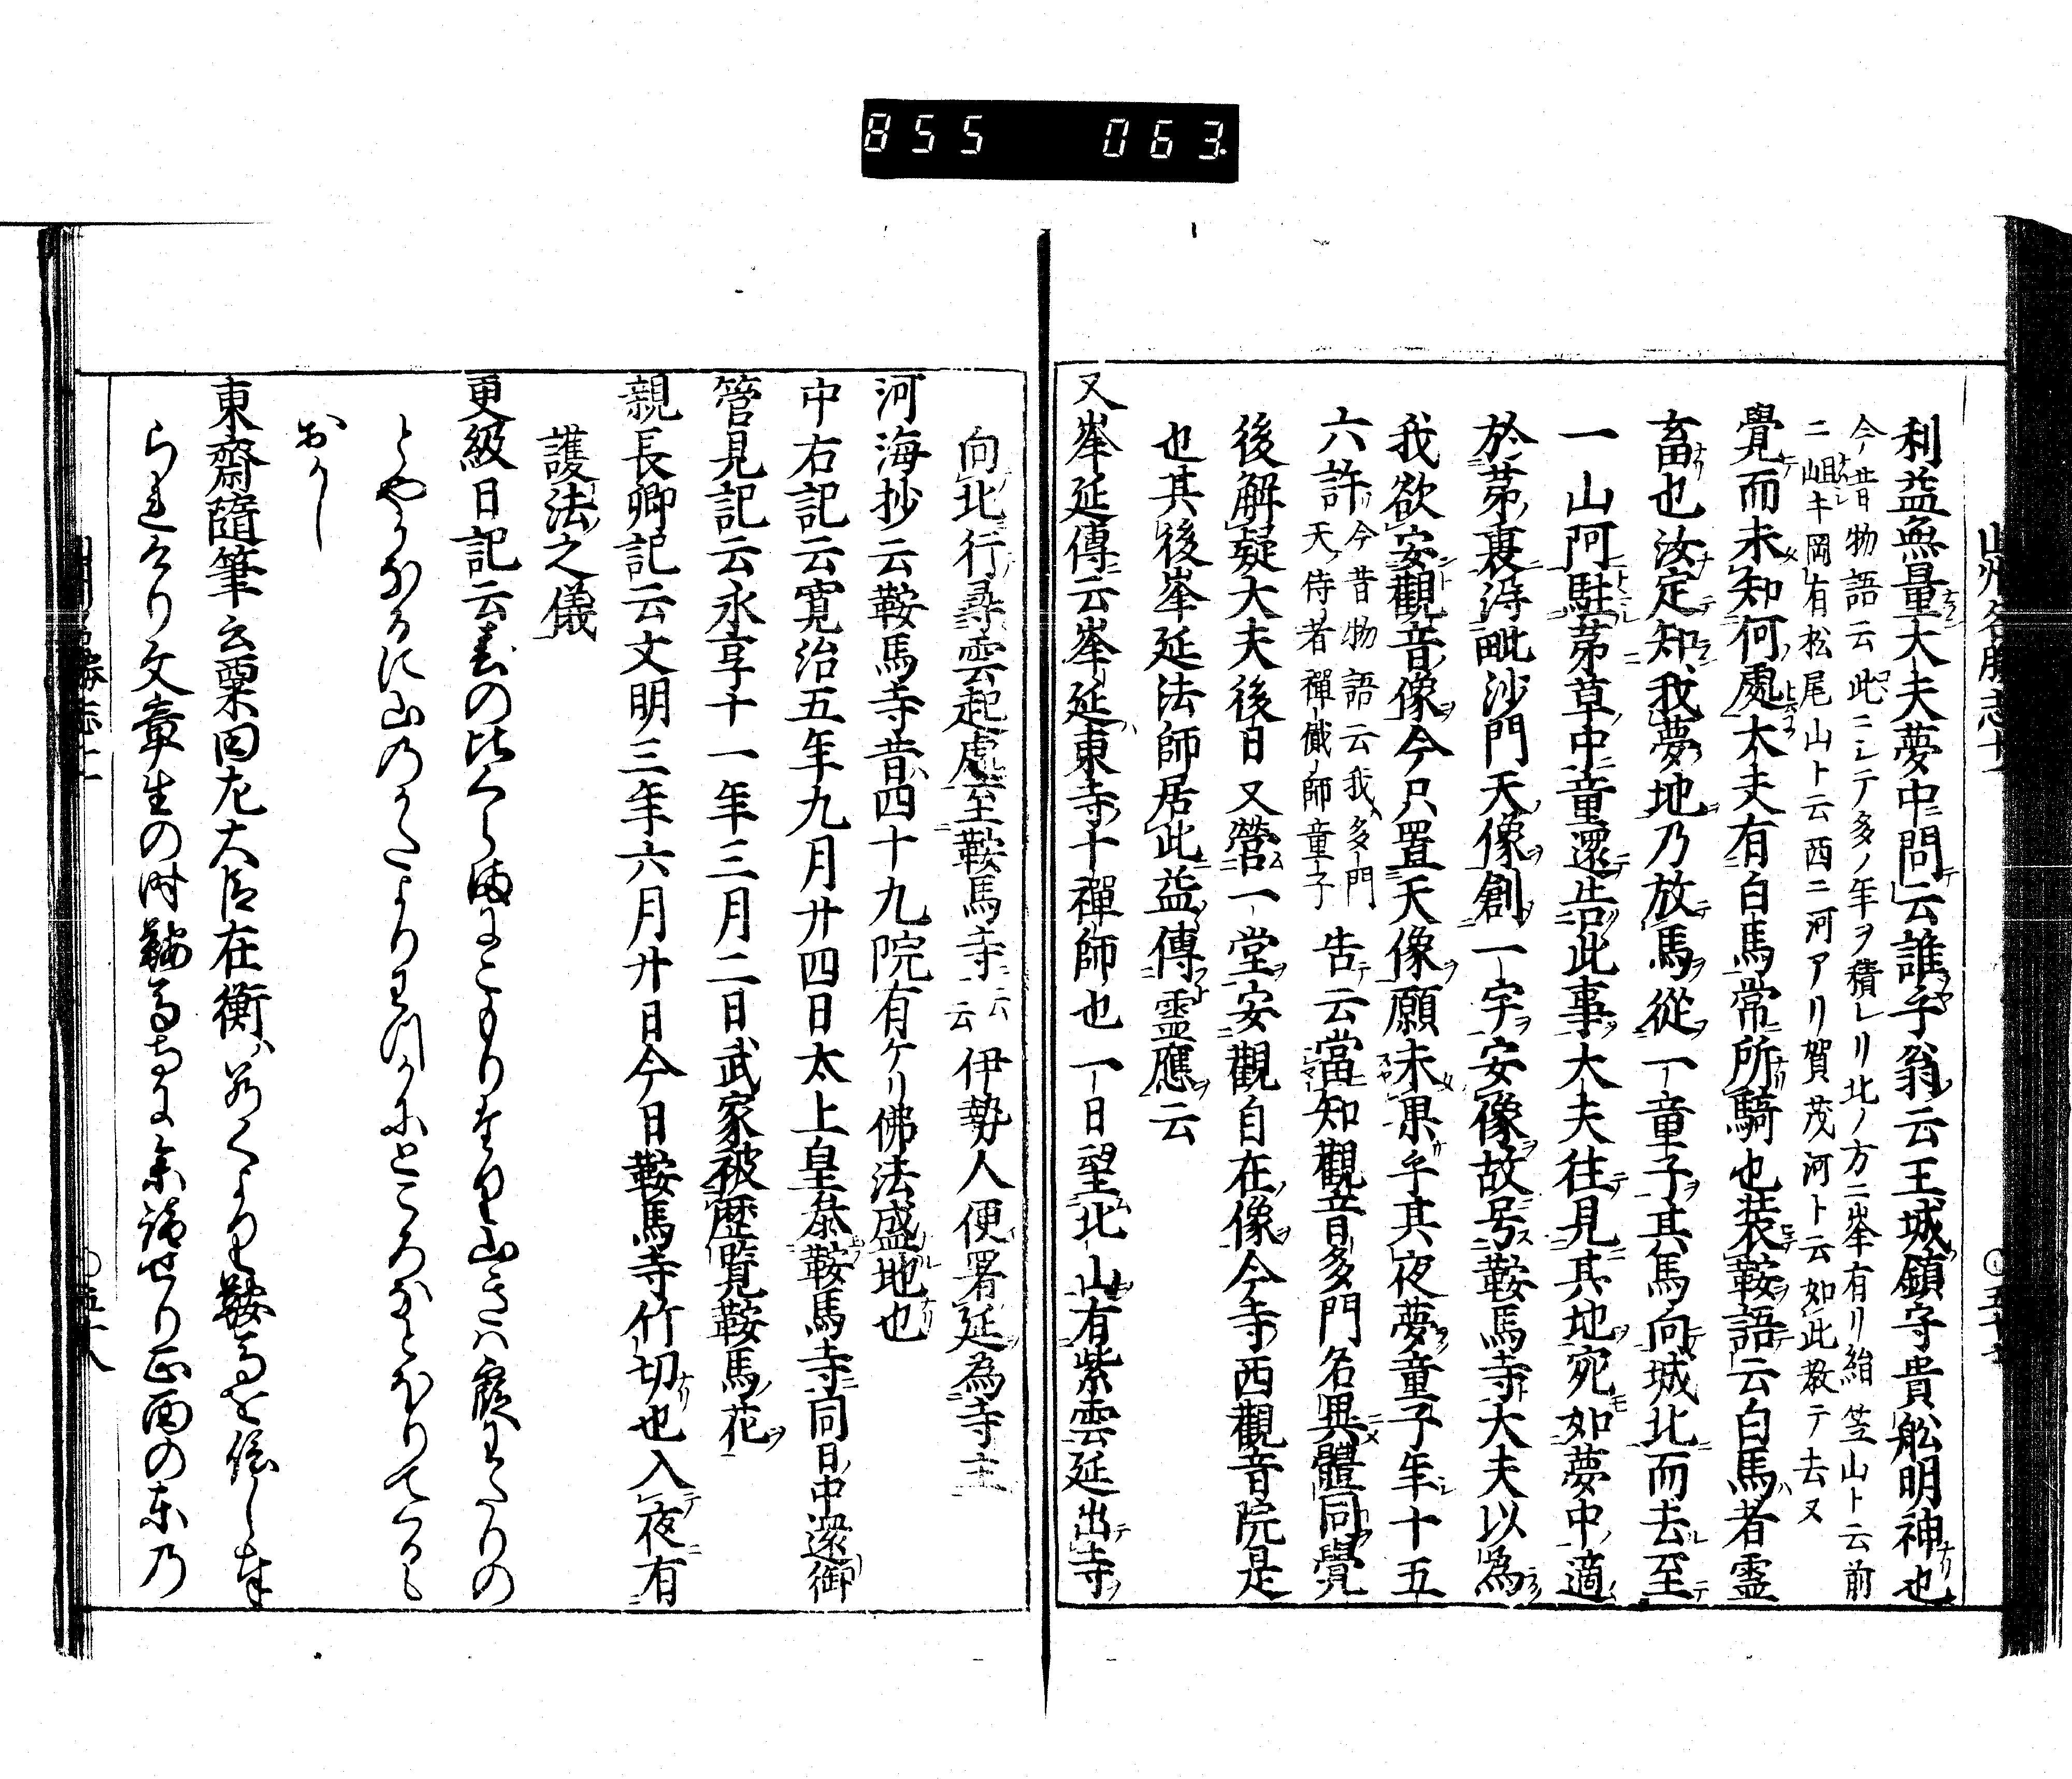 855 063
利益無量大夫夢中問云誰乎翁云王城鎮守貴舩明神也
今昔物語云此ニシテ多ノ年ヲ積レリ北ノ方ニ峯有リ絹笠山ト云前
ニ岨キ岡有松尾山ト云西ニ河アリ賀茂河ト云如此教テ去又
覺而未知何處大夫有白馬常所騎也装鞍語云白馬者霊
畜也汝定知我夢地乃放馬從一童子其馬向城北而去至
一山阿駐茅草中童還告此事大夫往見其地宛如夢中適
於茅裏淂毗沙門天像創一宇安像故号鞍馬寺大夫以為
我欲安觀音像今只置天像願未果乎其夜夢童子年十五
六許今昔物語云我多門天侍者禪儎師童子告云當知觀音多門名異體同覺
後解疑大夫後日又營一堂安觀自在像今寺西觀音院是
也其後峯延法師居此益傳霊應云
又峯延傳云峯延東寺十禪師也一日望北山有紫雲延出寺
向北行尋雲起處至鞍馬寺云云伊勢人便署延為寺主
河海抄云鞍馬寺昔四十九院有ケリ佛法盛地也
中右記云寛治五年九月廿四日太上皇叅鞍馬寺同日中還御
管見記云永享十一年三月二日武家被歴覧鞍馬花
親長卿記云文明三年六月廿日今日鞍馬寺竹切也入夜有
護法之儀
更級日記云春の比くらまにこもりたり山きは霞わたりの
とやかなるに山のかたよりわつかにところなとほりてくるも
おかし
東齋隨筆云粟田左大臣在衡ハわかくより鞍馬を信し奉
られけり文章生の時鞍馬寺に参詣せり正面の東乃